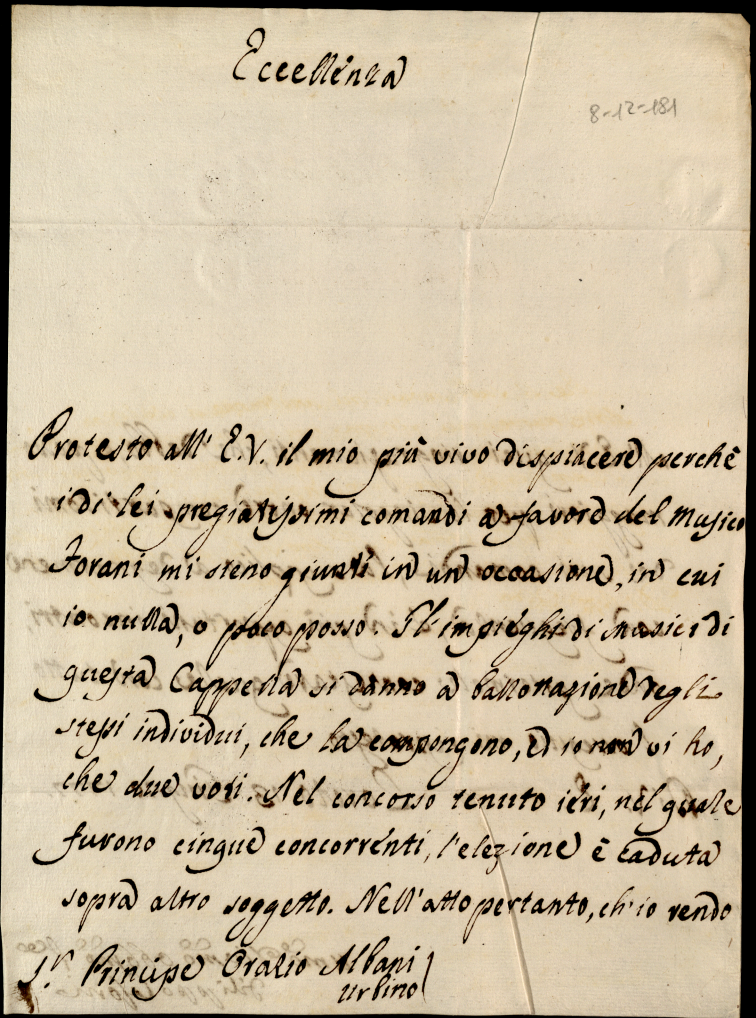 Eccellenza
8-12-181
Protesto all' E.V. il mio più vivo dispiacere perchè
i di lei pregiatissimi comandi a favore del Musico
Forani mi sieno giunti in un occasione, in cui
io nulla, o poco posso. Gl'impieghi di Musici di
questa Cappella si danno a ballottazione degli
stessi individui, che la compongono, ed io non vi ho,
che due voti. Nel concorso tenuto ieri, nel quale
furono cinque concorrenti, l'elezione è caduta
sopra altro soggetto. Nell'atto pertanto, ch'io rendo
S.r Principe Orazio Albani
Urbino